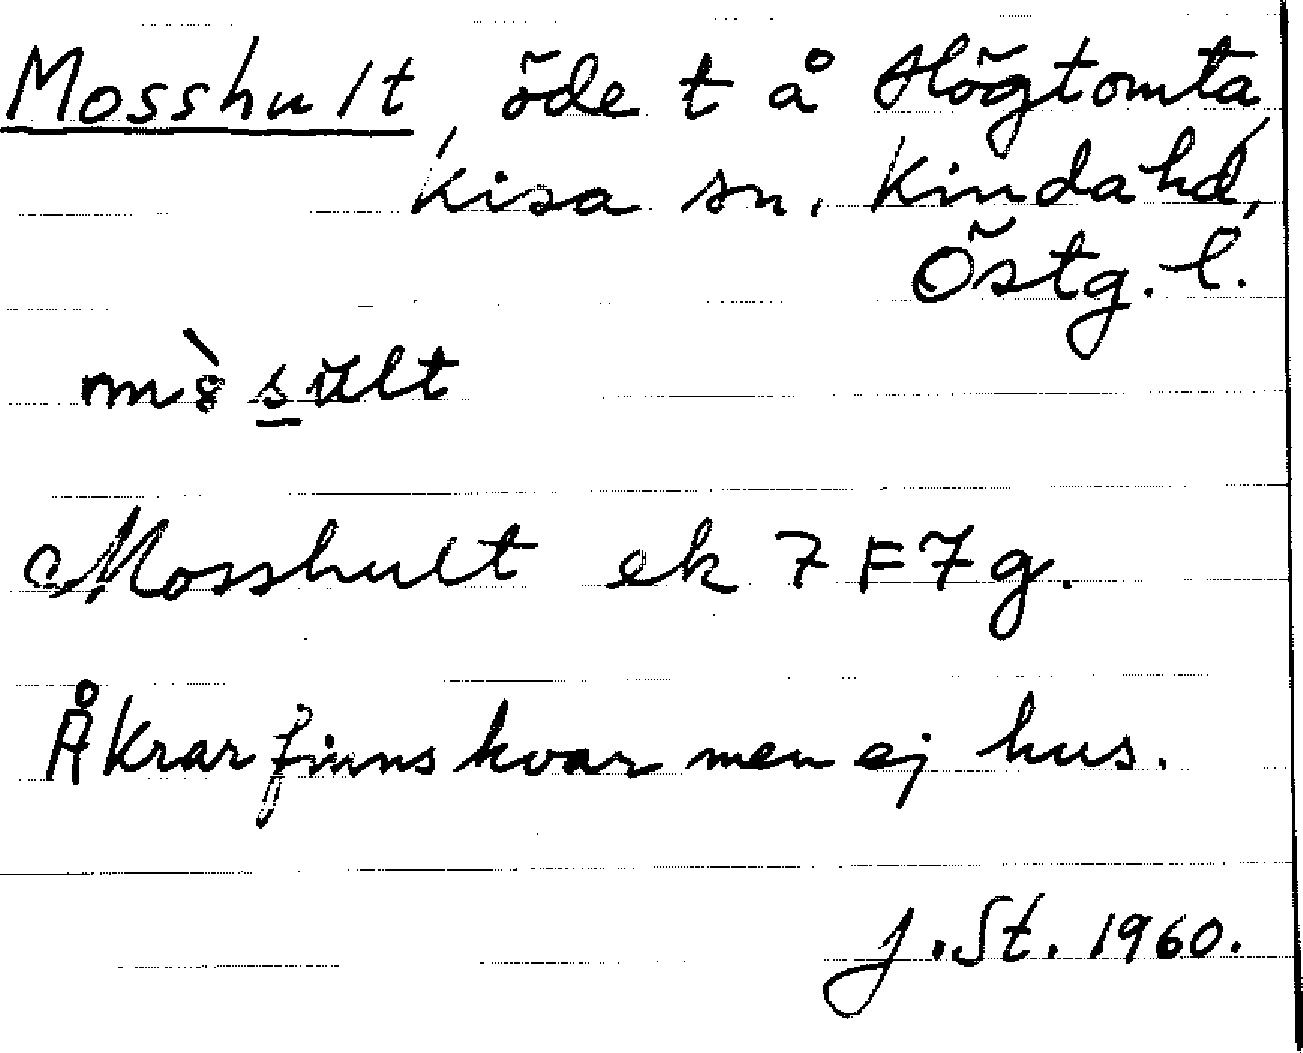 Mosshult, öde t å Högtomta,
Kisa sn. Kinda hd,
Östg. l.
Mosshult ek 7 F 7 g.
Åkrar finns kvar men ej hus.
J. St. 1960.